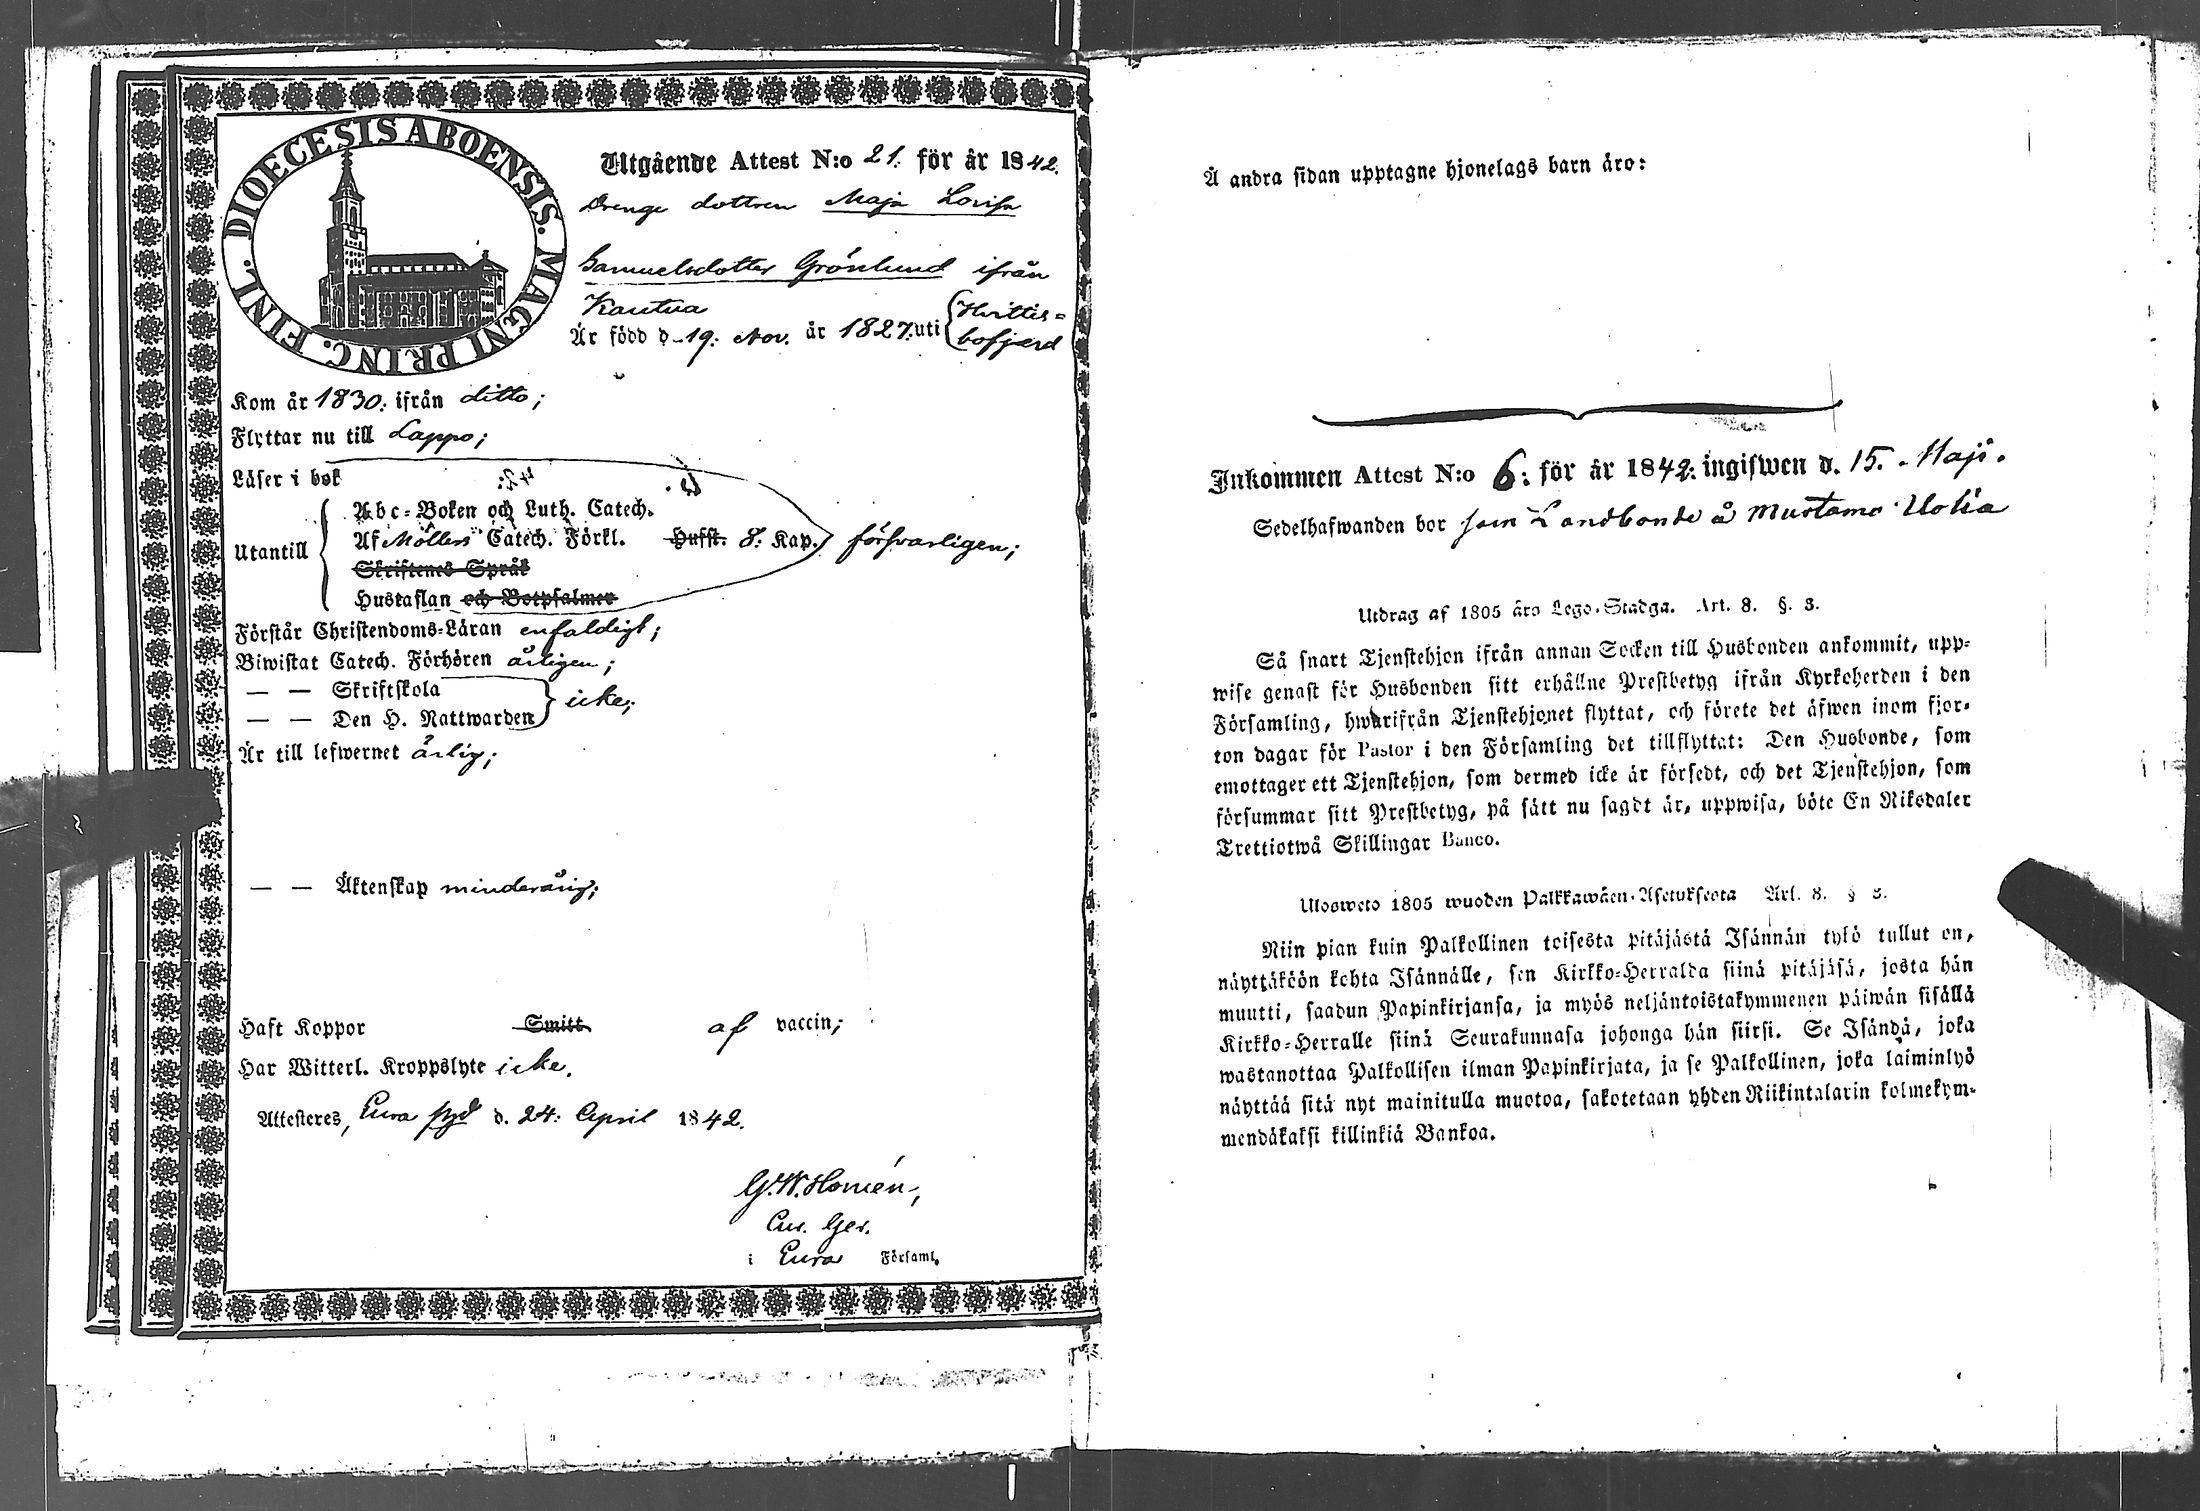 DIOECESIS ABOENSIS. MAGNI PRINC. FINL.
Utgående Attest N:o 21. för år 1842.
Drenge dottren Maja Lovisa
Samuelsdotter Grönlund ifrån
Kautua
Är född d. 19. Nov. år 1827. uti Hvittis=
bofjerd
Kom år 1830. ifrån ditto;
Flyttar nu till Lappo;
Läser i bok
Utantill
Abc=Boken och Luth. Catech.
Af Möllers Catech. Förkl. Hufst. 8. Kap. försvarligen;
Skriftenes Språk
Hustaflan och Botpsalmer
Förstår Christendoms=Läran enfaldigt;
Biwistat Catech. Förhören årligen;
— — Skriftskola
icke;
— — Den H. Nattwarden
Är till lefwernet ärlig;
— — Äktenskap minderårig;
Haft Koppor Smitt. af vaccin;
Har Witterl. Kroppslyte icke.
Attesteres, Eura d. 24. April 1842.
G.W. Homén,
i Eura Församl.
Å andra sidan upptagne hjonelags barn äro:
Inkommen Attest N:o 6: för år 1842: ingifwen d. 15. Maji.
Sedelhafwanden bor som Landbonde å Mustamo Uotia
Utdrag af 1805 års Lego=Stadga. Art. 8. §. 3.
Så snart Tjenstehjon ifrån annan Socken till Husbonden ankommit, upp=
wise genast för Husbonden sitt erhållne Prestbetyg ifrån Kyrkoherden i den
Församling, hwarifrån Tjenstehjonet flyttat, och förete det äfwen inom fjor=
ton dagar för Pastor i den Församling det tillflyttat: Den Husbonde, som
emottager ett Tjenstehjon, som dermed icke är försedt, och det Tjenstehjon, som
försummar sitt Prestbetyg, på sätt nu sagdt är, uppwisa, böte En Riksdaler
Trettiotwå Skillingar Banco.
Ulosweto 1805 wuoden Palkkawäen=Asetuksesta Art. 8. § 3.
Niin pian kuin Palkollinen toisesta pitäjästä Isännän tykö tullut on,
näyttäköön kohta Isännälle, sen Kirkko=Herralda siinä pitäjäsä, josta hän
muutti, saadun Papinkirjansa, ja myös neljäntoistakymmenen päiwän sisällä
Kirkko=Herralle siinä Seurakunnasa johonga hän siirsi. Se Isändä, joka
wastanottaa Palkollisen ilman Papinkirjata, ja se Palkollinen, joka laiminlyö
näyttää sitä nyt mainitulla muotoa, sakotetaan yhden Riikintalarin kolmekym=
mendäkaksi killinkiä Bankoa.